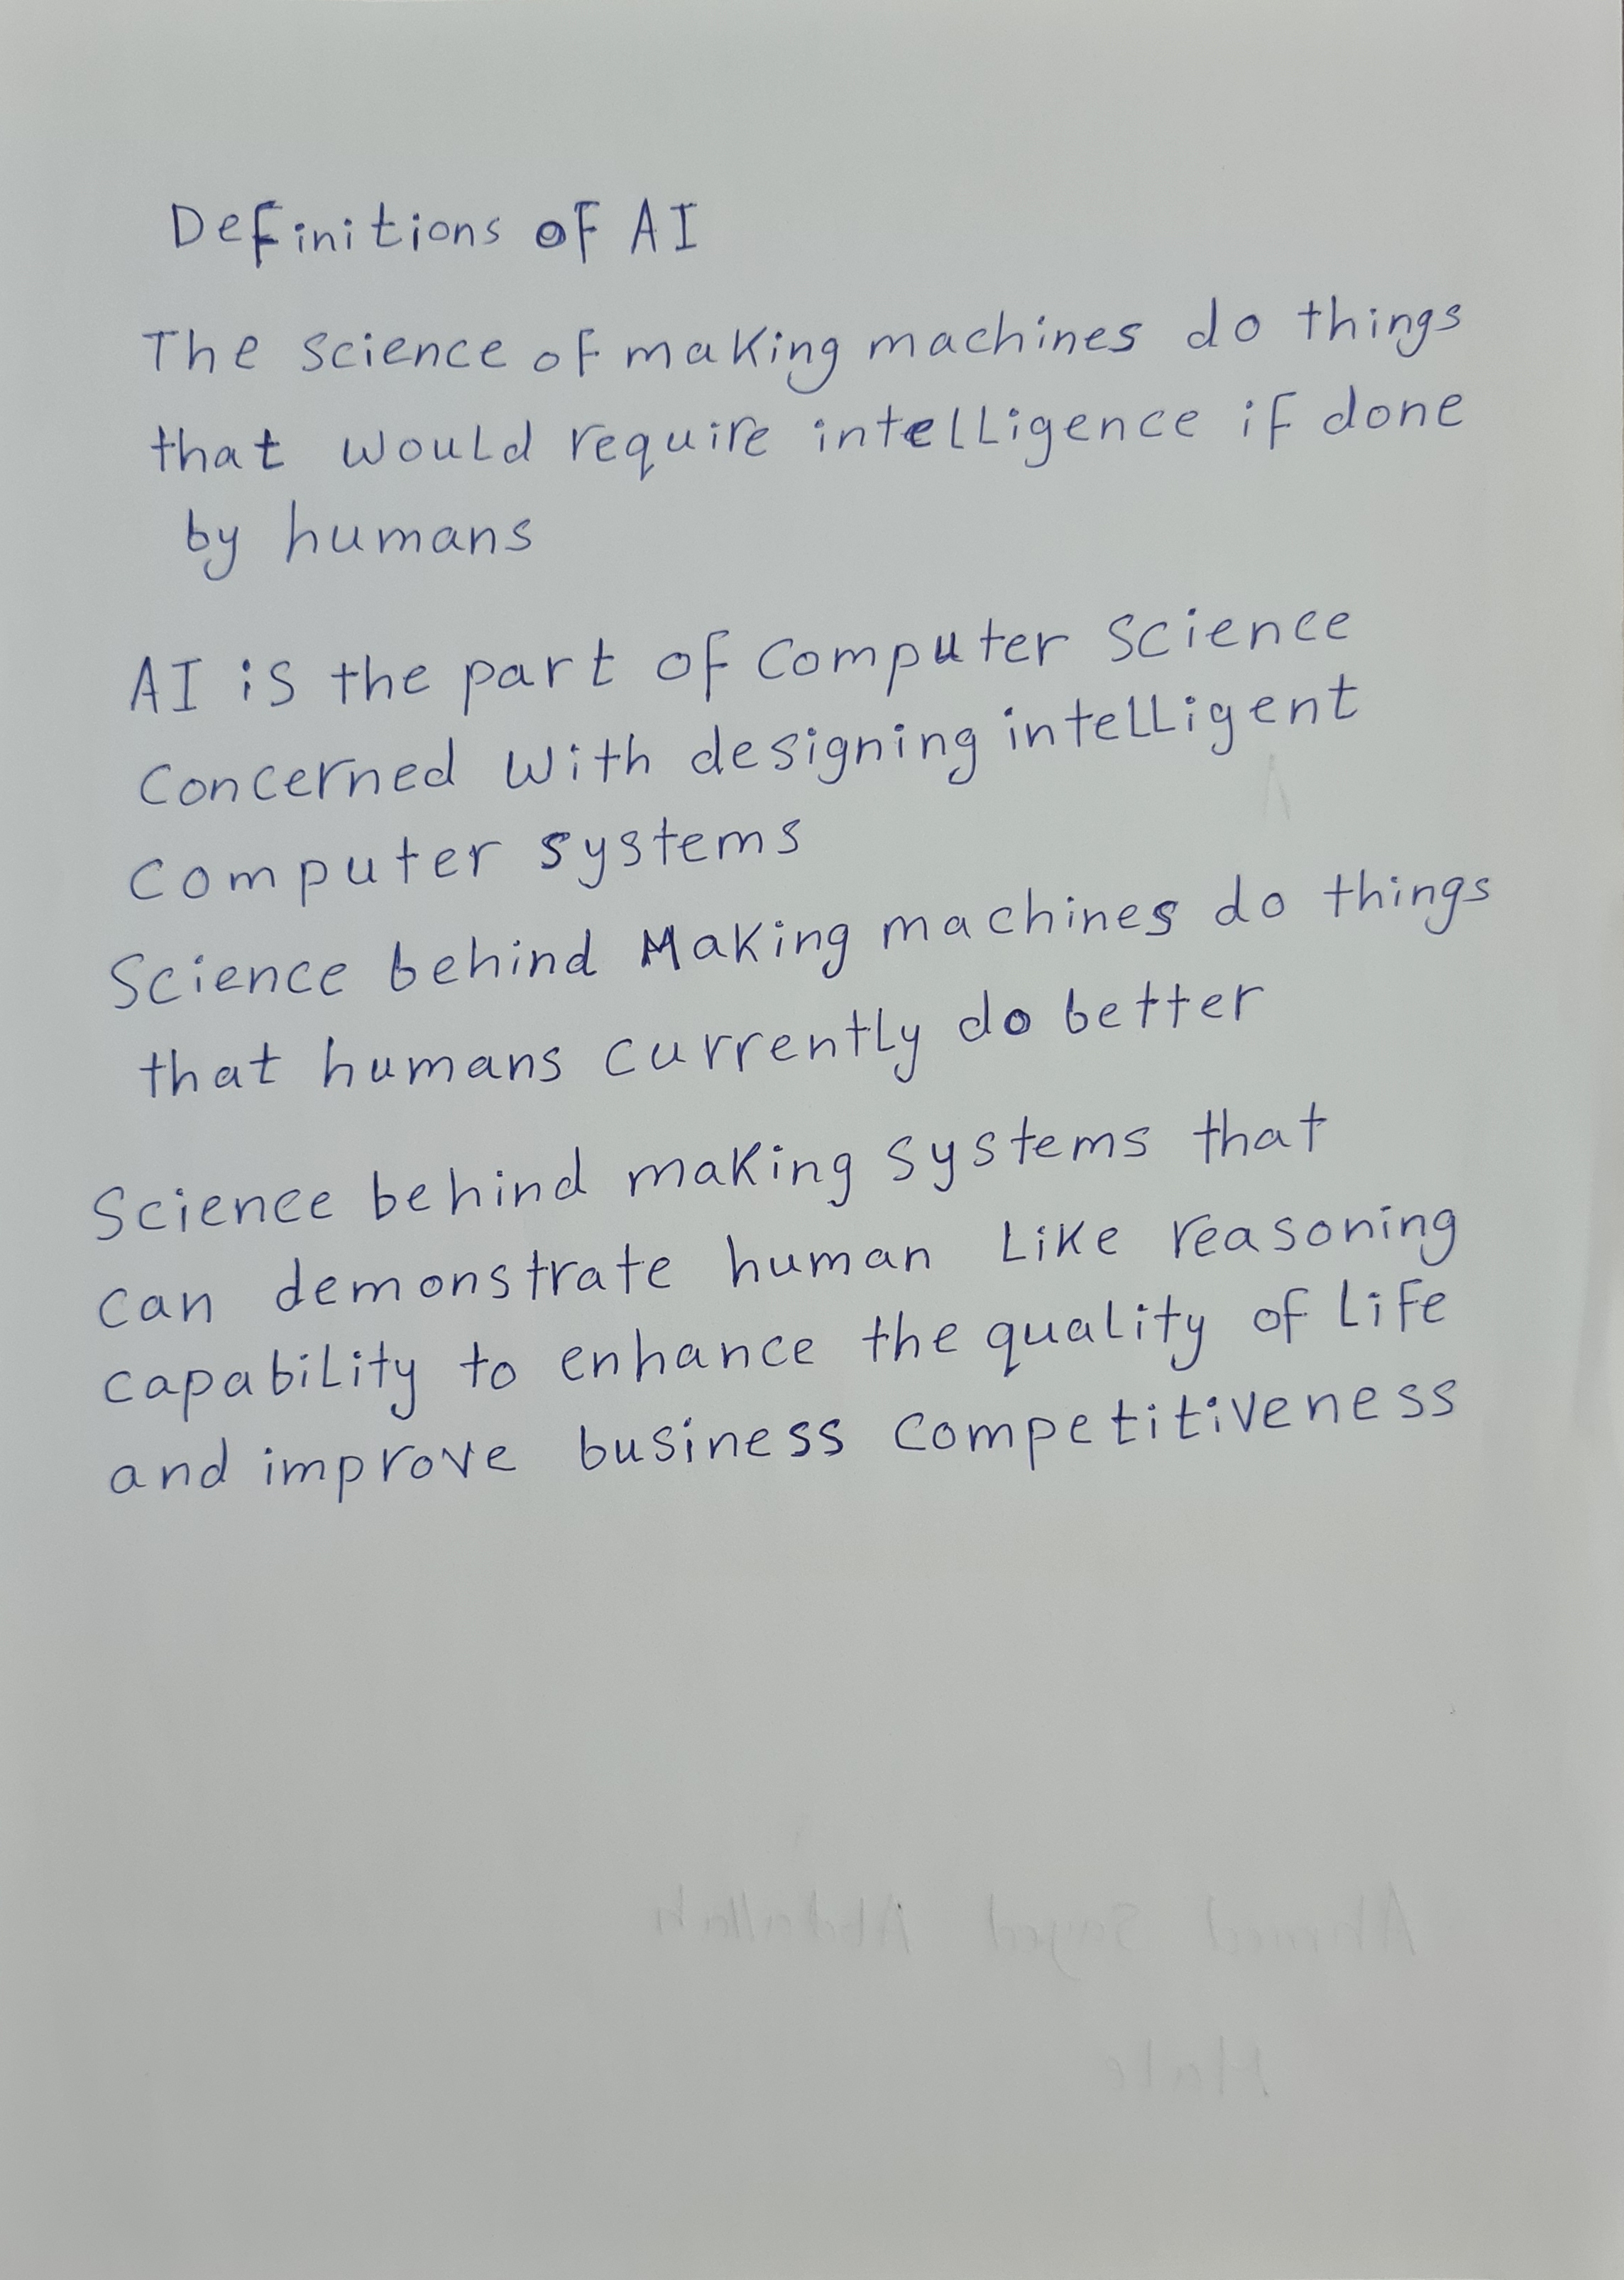 Definitions of AI
The science of making machines do things
that would require intelligence if done
by humans
AI is the part of computer science
concerned with designing intelligent
computer systems
Science behind Making machines do things
that humans currently do better
Science behind making systems that
can demonstrate human like reasoning
capability to enhance the quality of life
and improve business competitiveness
Ahmed Sayed Abdallah